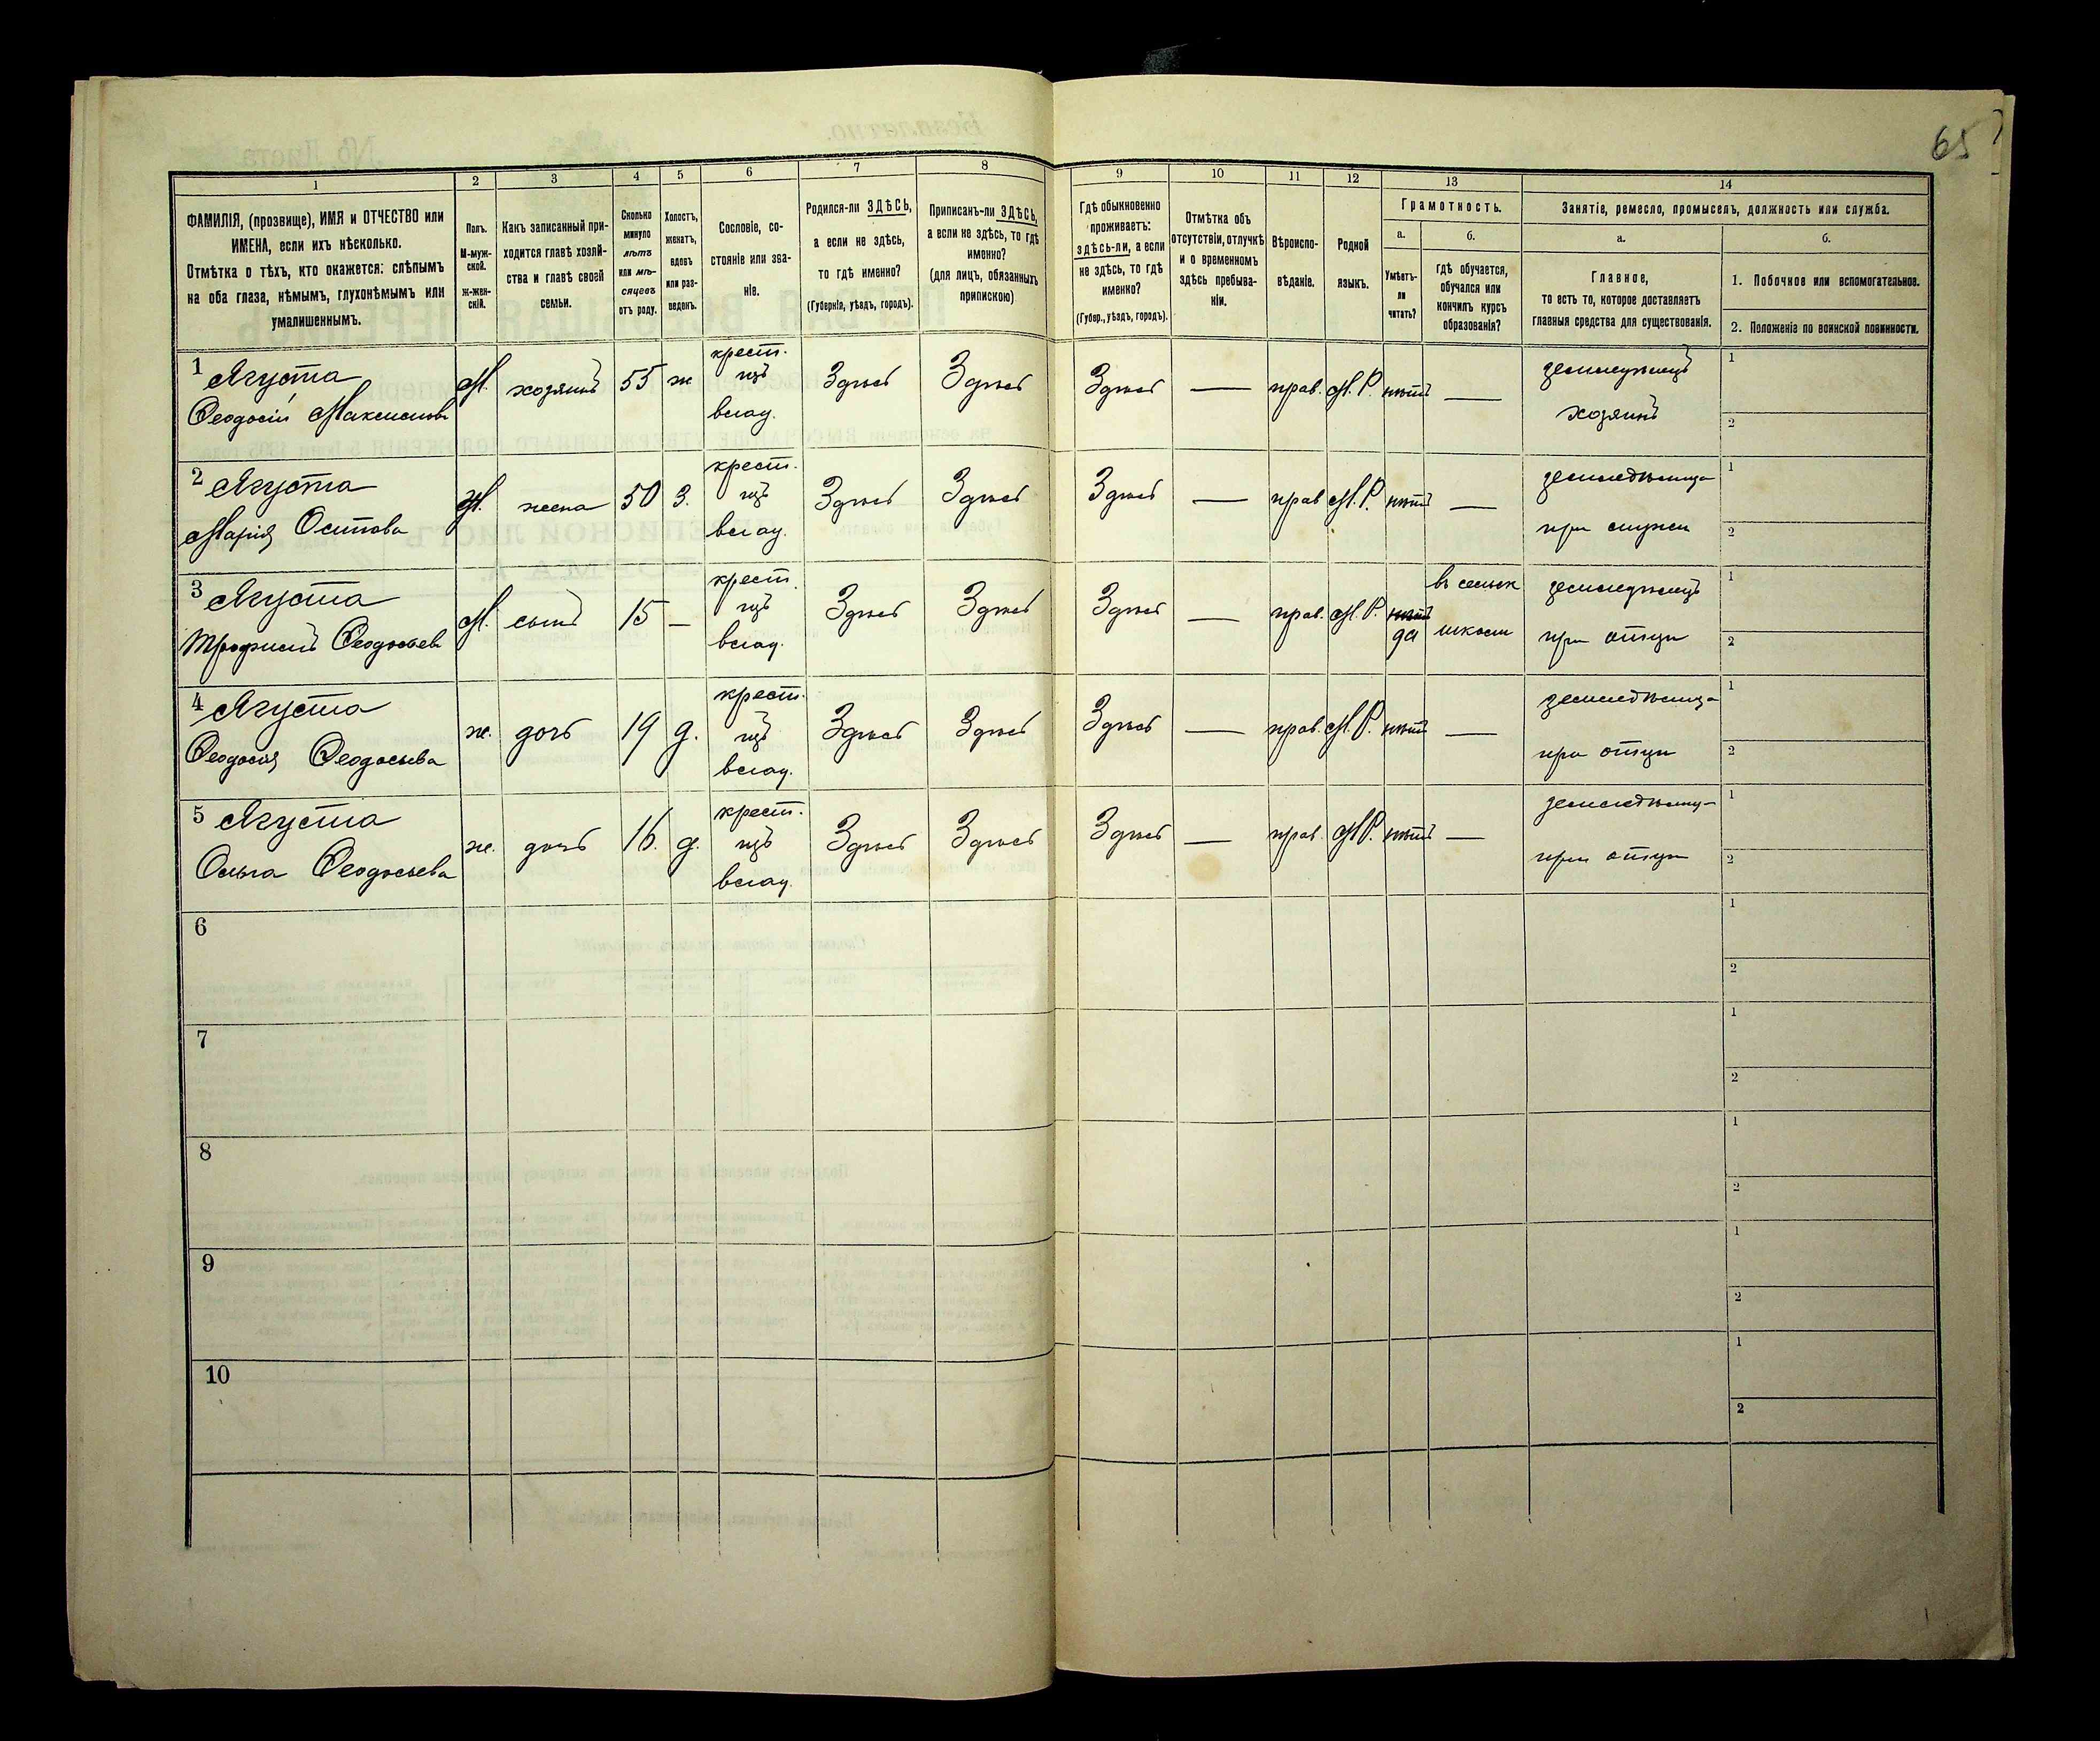 65
1
2
3
4
5
6
7
8
9
10
11
12
13
14
ФАМИЛІЯ, (прозвище), ИМЯ и ОТЧЕСТВО или
ИМЕНА, если ихъ нѣсколько.
Отмѣтка о тѣхъ, кто окажется: слѣпымъ
на оба глаза, нѣмымъ, глухонѣмымъ или
умалишеннымъ.
Полъ.
М-муж-
ской.
ж-жен-
скій.
Какъ записанный при-
ходится главѣ хозяй-
ства и главѣ своей
семьи.
Сколько
минуло
лѣтъ
или мѣ-
сяцевъ
отъ роду.
Холостъ,
женатъ,
вдовъ
или раз-
веденъ.
Сословіе, со-
стояніе или зва-
ніе.
Родился-ли ЗДѢСЬ,
а если не здѣсь,
то гдѣ именно?
(Губернія, уѣздъ, городъ).
Приписанъ-ли ЗДѢСЬ,
а если не здѣсь, то гдѣ
именно?
(для лицъ, обязанныхъ
припискою)
Гдѣ обыкновенно
проживаетъ:
здѣсь-ли, а если
не здѣсь, то гдѣ
именно?
(Губер., уѣздъ, городъ).
Отмѣтка объ
отсутствіи, отлучкѣ
и о временномъ
здѣсь пребыва-
ніи.
Вѣроиспо-
вѣданіе.
Родной
языкъ.
Грамотность.
а.
Умѣетъ-
ли
читать?
б.
гдѣ обучается,
обучался или
кончилъ курсъ
образованія?
Занятіе, ремесло, промыселъ, должность или служба.
а.
Главное,
то есть то, которое доставляетъ
главныя средства для существованія.
б.
1. Побочное или вспомогательное.
2. Положеніе по воинской повинности.
1 Ягуста
Ѳеодосій Максимовъ
М. хозяинъ 55 ж
крест.
изъ
влад.
Здѣсь Здѣсь Здѣсь — прав. М. Р. нѣтъ —
земледѣлецъ
хозяинъ
1
2
2 Ягуста
Марія Осипова
Ж. жена 50 З.
крест.
изъ
влад.
Здѣсь Здѣсь Здѣсь — прав М. Р. нѣтъ —
при мужи
1
2
3 Ягуста
Трофимъ Ѳеодосьевъ
М. сынъ 15 —
крест.
изъ
влад.
Здѣсь Здѣсь Здѣсь — прав. М. Р. нѣтъ
да
въ сельск
школи
земледѣлецъ
при отци
1
2
4 Ягуста
Ѳеодосія Ѳеодосьева
ж. дочь 19 д.
крест.
изъ
влад.
Здѣсь Здѣсь Здѣсь — прав. М. Р. нѣтъ —
при отци
1
2
5 Ягуста
Ольга Ѳеодосьева
ж. дочь 16. д.
крест.
изъ
влад.
Здѣсь Здѣсь Здѣсь — прав. М Р. нѣтъ —
при отци
1
2
6
1
2
7
1
2
8
1
2
9
1
2
10
1
2